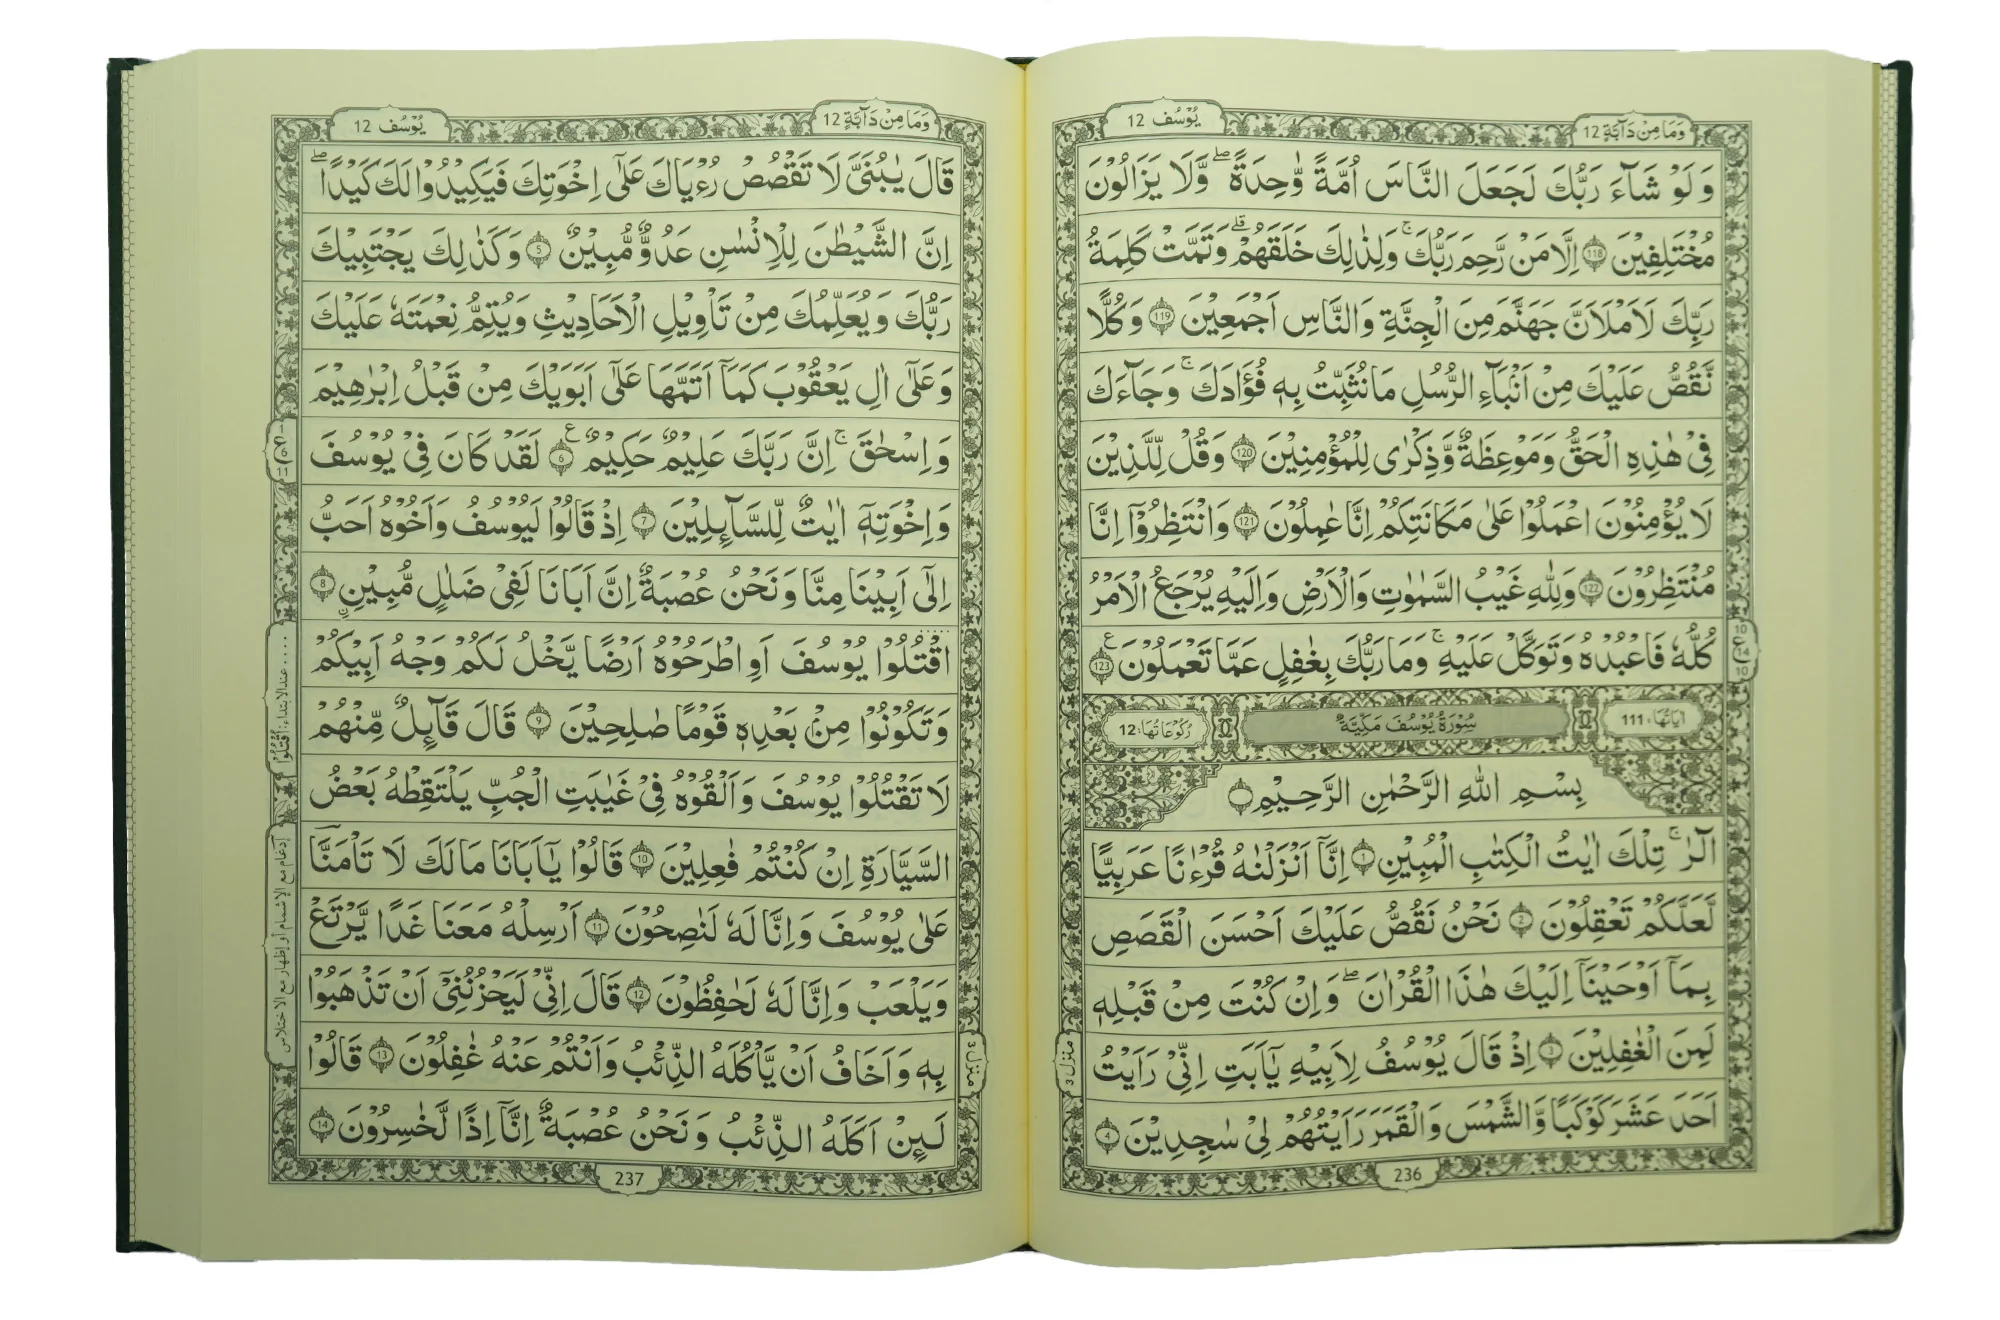 وَمَا مِنْ دَآبَّةٍ 12
يُوْسُف 12
وَلَوْ شَآءَ رَبُّكَ لَجَعَلَ النَّاسَ اُمَّةً وَّاحِدَةً ۖ وَّلَا يَزَالُوْنَ
مُخْتَلِفِيْنَ 118 اِلَّا مَنْ رَّحِمَ رَبُّكَ ۚ وَلِذٰلِكَ خَلَقَهُمْ ۗ وَتَمَّتْ كَلِمَةُ
رَبِّكَ لَاَمْلَـَٔنَّ جَهَنَّمَ مِنَ الْجِنَّةِ وَالنَّاسِ اَجْمَعِيْنَ 119 وَكُلًّا
نَّقُصُّ عَلَيْكَ مِنْ اَنْۢبَآءِ الرُّسُلِ مَا نُثَبِّتُ بِهٖ فُؤَادَكَ ۚ وَجَآءَكَ
فِيْ هٰذِهِ الْحَقُّ وَمَوْعِظَةٌ وَّذِكْرٰى لِلْمُؤْمِنِيْنَ 120 وَقُلْ لِّلَّذِيْنَ
لَا يُؤْمِنُوْنَ اعْمَلُوْا عَلٰى مَكَانَتِكُمْ اِنَّا عٰمِلُوْنَ 121 وَانْتَظِرُوْٓا اِنَّا
مُنْتَظِرُوْنَ 122 وَلِلّٰهِ غَيْبُ السَّمٰوٰتِ وَالْاَرْضِ وَاِلَيْهِ يُرْجَعُ الْاَمْرُ
كُلُّهٗ فَاعْبُدْهُ وَتَوَكَّلْ عَلَيْهِ ۚ وَمَا رَبُّكَ بِغٰفِلٍ عَمَّا تَعْمَلُوْنَ 123 ع
اٰيَاتُهَا: 111 سُوْرَةُ يُوْسُفَ مَكِّيَّةٌ رُكُوْعَاتُهَا: 12
بِسْمِ اللّٰهِ الرَّحْمٰنِ الرَّحِيْمِ
الٓرٰ ۚ تِلْكَ اٰيٰتُ الْكِتٰبِ الْمُبِيْنِ 1 اِنَّآ اَنْزَلْنٰهُ قُرْءٰنًا عَرَبِيًّا
لَّعَلَّكُمْ تَعْقِلُوْنَ 2 نَحْنُ نَقُصُّ عَلَيْكَ اَحْسَنَ الْقَصَصِ
بِمَآ اَوْحَيْنَآ اِلَيْكَ هٰذَا الْقُرْاٰنَ ۖ وَاِنْ كُنْتَ مِنْ قَبْلِهٖ
لَمِنَ الْغٰفِلِيْنَ 3 اِذْ قَالَ يُوْسُفُ لِاَبِيْهِ يٰٓاَبَتِ اِنِّيْ رَاَيْتُ
اَحَدَ عَشَرَ كَوْكَبًا وَّالشَّمْسَ وَالْقَمَرَ رَاَيْتُهُمْ لِيْ سٰجِدِيْنَ 4
منزل ٣
236
وَمَا مِنْ دَآبَّةٍ 12
يُوْسُف 12
قَالَ يٰبُنَيَّ لَا تَقْصُصْ رُءْيَاكَ عَلٰٓى اِخْوَتِكَ فَيَكِيْدُوْا لَكَ كَيْدًا ۖ
اِنَّ الشَّيْطٰنَ لِلْاِنْسٰنِ عَدُوٌّ مُّبِيْنٌ 5 وَكَذٰلِكَ يَجْتَبِيْكَ
رَبُّكَ وَيُعَلِّمُكَ مِنْ تَاْوِيْلِ الْاَحَادِيْثِ وَيُتِمُّ نِعْمَتَهٗ عَلَيْكَ
وَعَلٰٓى اٰلِ يَعْقُوْبَ كَمَآ اَتَمَّهَا عَلٰٓى اَبَوَيْكَ مِنْ قَبْلُ اِبْرٰهِيْمَ
وَاِسْحٰقَ ۚ اِنَّ رَبَّكَ عَلِيْمٌ حَكِيْمٌ 6 ع لَقَدْ كَانَ فِيْ يُوْسُفَ
وَاِخْوَتِهٖٓ اٰيٰتٌ لِّلسَّآىِٕلِيْنَ 7 اِذْ قَالُوْا لَيُوْسُفُ وَاَخُوْهُ اَحَبُّ
اِلٰٓى اَبِيْنَا مِنَّا وَنَحْنُ عُصْبَةٌ اِنَّ اَبَانَا لَفِيْ ضَلٰلٍ مُّبِيْنٍ 8
اقْتُلُوْا يُوْسُفَ اَوِ اطْرَحُوْهُ اَرْضًا يَّخْلُ لَكُمْ وَجْهُ اَبِيْكُمْ
وَتَكُوْنُوْا مِنْۢ بَعْدِهٖ قَوْمًا صٰلِحِيْنَ 9 قَالَ قَآىِٕلٌ مِّنْهُمْ
لَا تَقْتُلُوْا يُوْسُفَ وَاَلْقُوْهُ فِيْ غَيٰبَتِ الْجُبِّ يَلْتَقِطْهُ بَعْضُ
السَّيَّارَةِ اِنْ كُنْتُمْ فٰعِلِيْنَ 10 قَالُوْا يٰٓاَبَانَا مَا لَكَ لَا تَاْمَنَّا
عَلٰى يُوْسُفَ وَاِنَّا لَهٗ لَنٰصِحُوْنَ 11 اَرْسِلْهُ مَعَنَا غَدًا يَّرْتَعْ
وَيَلْعَبْ وَاِنَّا لَهٗ لَحٰفِظُوْنَ 12 قَالَ اِنِّيْ لَيَحْزُنُنِيْٓ اَنْ تَذْهَبُوْا
بِهٖ وَاَخَافُ اَنْ يَّاْكُلَهُ الذِّئْبُ وَاَنْتُمْ عَنْهُ غٰفِلُوْنَ 13 قَالُوْا
لَىِٕنْ اَكَلَهُ الذِّئْبُ وَنَحْنُ عُصْبَةٌ اِنَّآ اِذًا لَّخٰسِرُوْنَ 14
عند الابتداء: اُقْتُلُوْا
إدغام مع الإشمام أو إظهار مع الاختلاس
منزل ٣
237